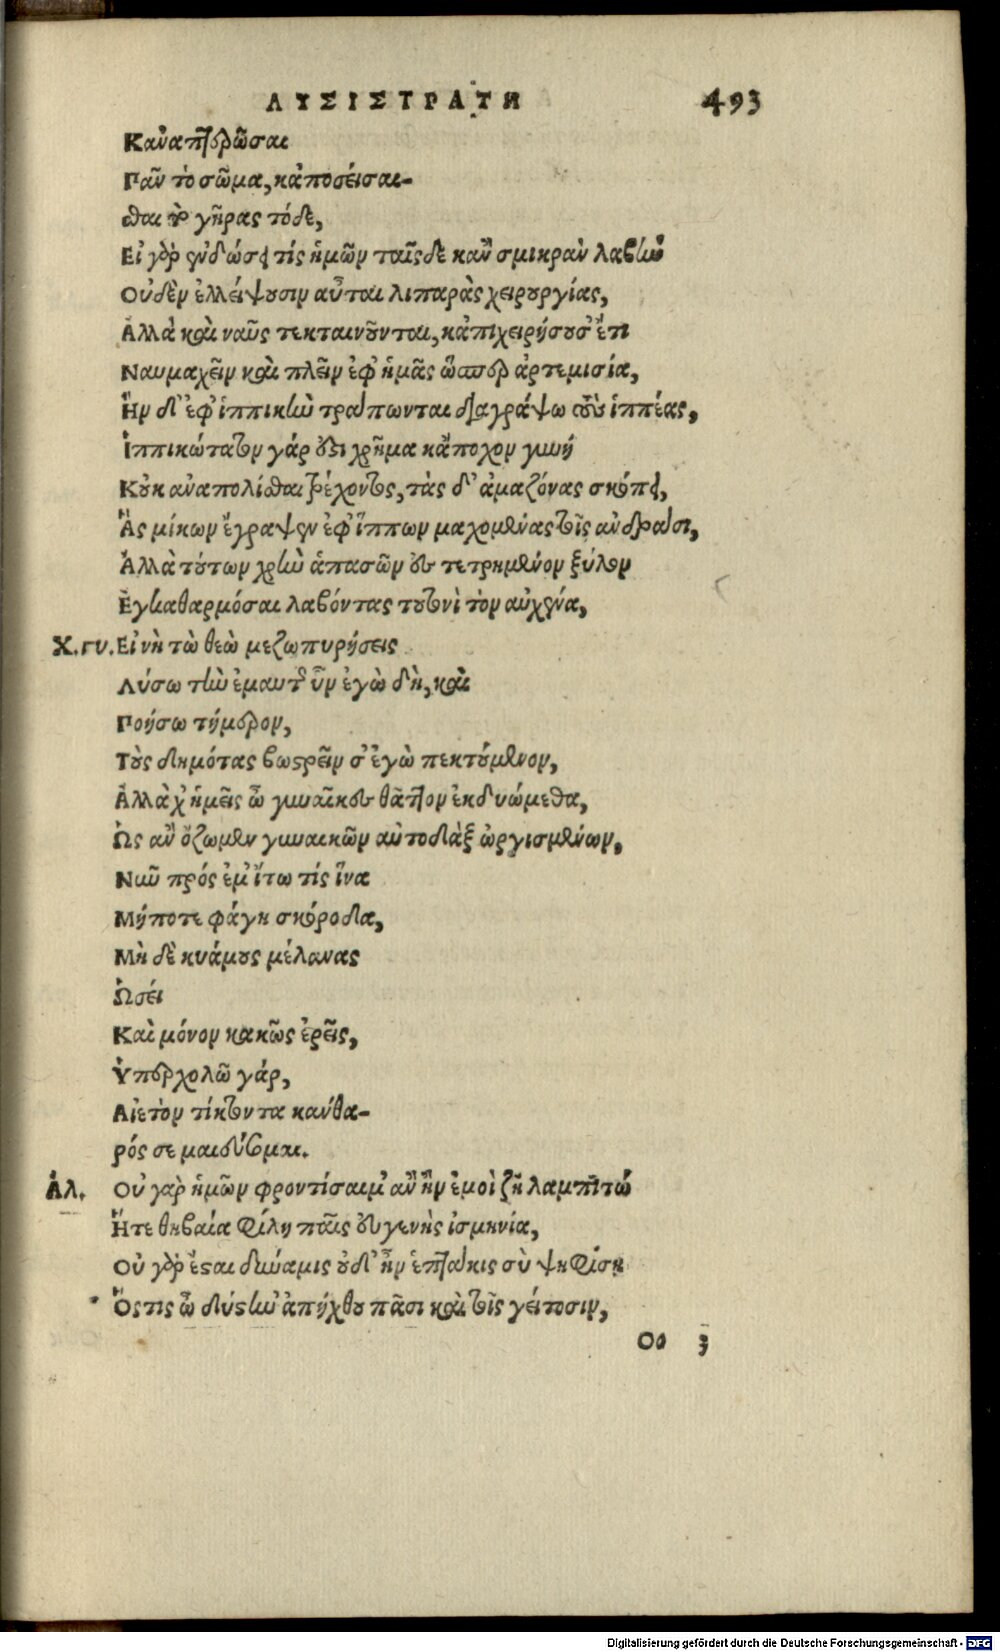 ΛΥΣΙΣΤΡΑΤΗ 493
Κἀναπτερῶσαι
Πᾶν τὸ σῶμα, κἀποσείσα-
σθαι τὸ γῆρας τόδε,
Εἰ γὰρ ἐνδώσει τὶς ἡμῶν ταῖσδε κἂν σμικρὰν λαβὴν
Οὐδὲν ἐλλείψουσιν αὗται λιπαρὰς χειρουργίας,
Ἀλλὰ καὶ ναῦς τεκταινοῦνται, κἀπιχειρήσουσ' ἔτι
Ναυμαχεῖν καὶ πλεῖν ἐφ' ἡμᾶς ὥσπερ ἀρτεμισία,
Ἢν δ' ἐφ' ἱππικὴν τράπωνται διαγράψω τοὺς ἱππέας,
Ἱππικώτατον γάρ ὅστι χρῆμα κἄποχον γυνή
Κοὐκ ἀναπολίσθαι τρέχοντος, τὰς δ' ἀμαζόνας σκόπει,
Ἃς μίκων ἔγραψεν ἐφ' ἵππων μαχομένας τοῖς ἀνδράσι,
Ἀλλὰ τούτων χρὴν ἁπασῶν ἐς τετρημένον ξύλον
Ἐγκαθαρμόσαι λαβόντας τουτονὶ τὸν αὐχένα,
Χ.γυ. Εἰ νὴ τὼ θεὼ με ζωπυρήσεις
Λύσω τὴν ἐμαυτῆς ὗν ἐγὼ δὴ, καὶ
Ποιήσω τήμερον,
Τοὺς δημότας βωστρεῖν σ' ἐγὼ πεκτούμενον,
Ἀλλὰ χ' ἡμεῖς ὦ γυναῖκες θᾶττον ἐκδυώμεθα,
Ὡς ἂν ὄζωμεν γυναικῶν αὐτοδὰξ ὠργισμένων,
Νῦν πρός ἐμ' ἴτω τίς ἵνα
Μήποτε φάγη σκόροδα,
Μὴ δὲ κυάμους μέλανας
Ὡσεί
Καὶ μόνον κακῶς ἐρεῖς,
Ὑπερχολῶ γάρ,
Αἰετὸν τίκτοντα κάνθα-
ρός σε μαιεύσομαι.
Ἀλ. Οὐ γὰρ ἡμῶν φροντίσαιμ' ἂν ἢν ἐμοὶ ζῇ λαμπιτὼ
Ἥτε θηβαία φίλη παῖς εὐγενὴς ἰσμηνία,
Οὐ γὰρ ἔσται δύναμις οὐδ' ἢν ἑπτάκις σὺ ψηφίσῃ
Ὅστις ὦ δύστην' ἀπήχθου πᾶσι καὶ τοῖς γείτοσιν,
Oo 3
Digitalisierung gefördert durch die Deutsche Forschungsgemeinschaft - DFG